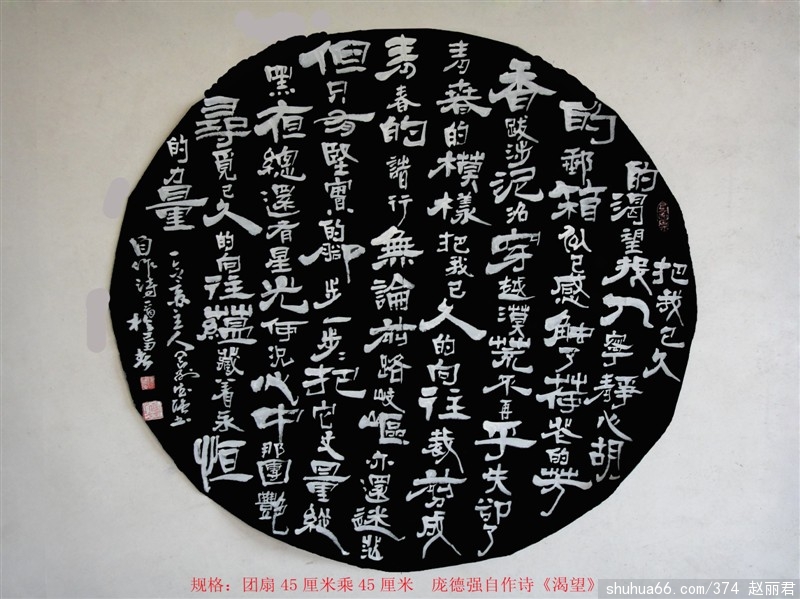 把我已久
的渴望投入寧靜心胡
的郵箱似已感触了荷花的芳
香跋涉泥沼穿越漠荒不再乎失卻了
青春的模樣把我已久的向往裁剪成
青春的諧行無論前路岐嶇亦還迷茫
但只有堅實的腳步一步二把它丈量縱
黑夜總還有星光何況心中那團艷
尋覓已久的向往蘊藏着永恒
的力量
主人
自作詩
规格：团扇45厘米乘45厘米 庞德强自作诗《渴望》
shuhua66.com/374 赵丽君